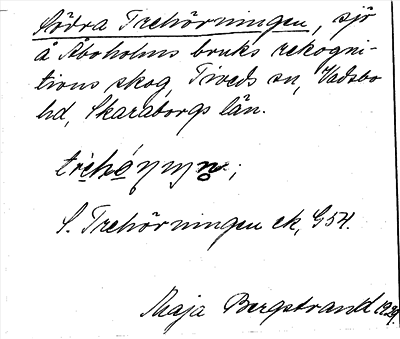 Södra Trehörningen, sjö
å Åboholms bruks rekogni-
tions skog, Tiveds sn, Vadsbo
hd, Skaraborgs län.
S. Trehörningen ek, G 54.
Maja Bergstrand 1929.